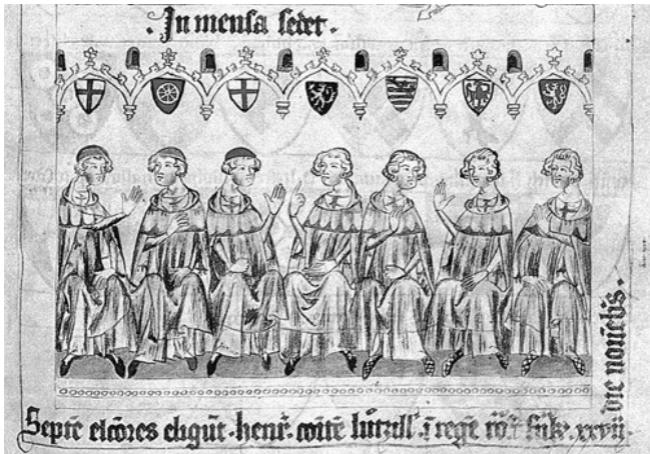 · In mensa sedet ·
Septē elc̄ores eligūt · henr̄ · comitē lūtzill' · ī regē xxvii ·
die novēb's ·